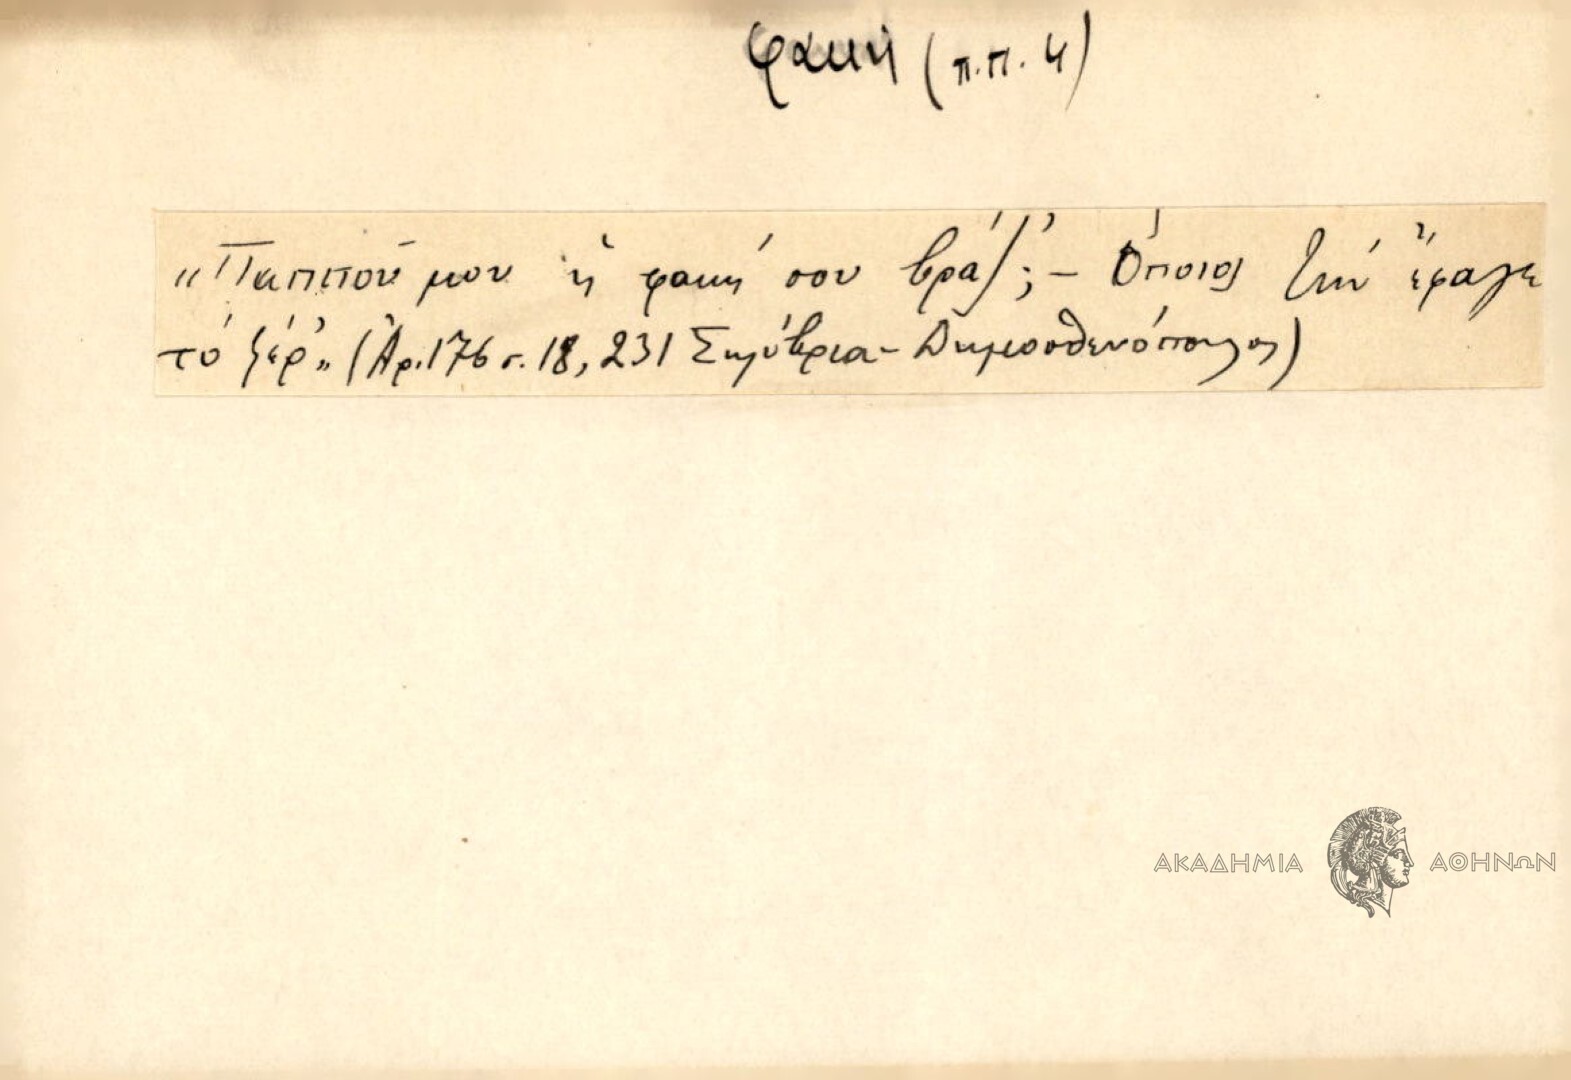 φακή (π.π. 4)
„Παπποῦ μου ἡ φακή σου βράζ'; – Ὁποιος τὴν ἔφαγε
τὸ ξέρ'„ (Ἀρ. 176 σ. 18, 231 Σηλύβρια – Δημοσθενόπουλος)
ΑΚΑΔΗΜΙΑ ΑΘΗΝΩΝ